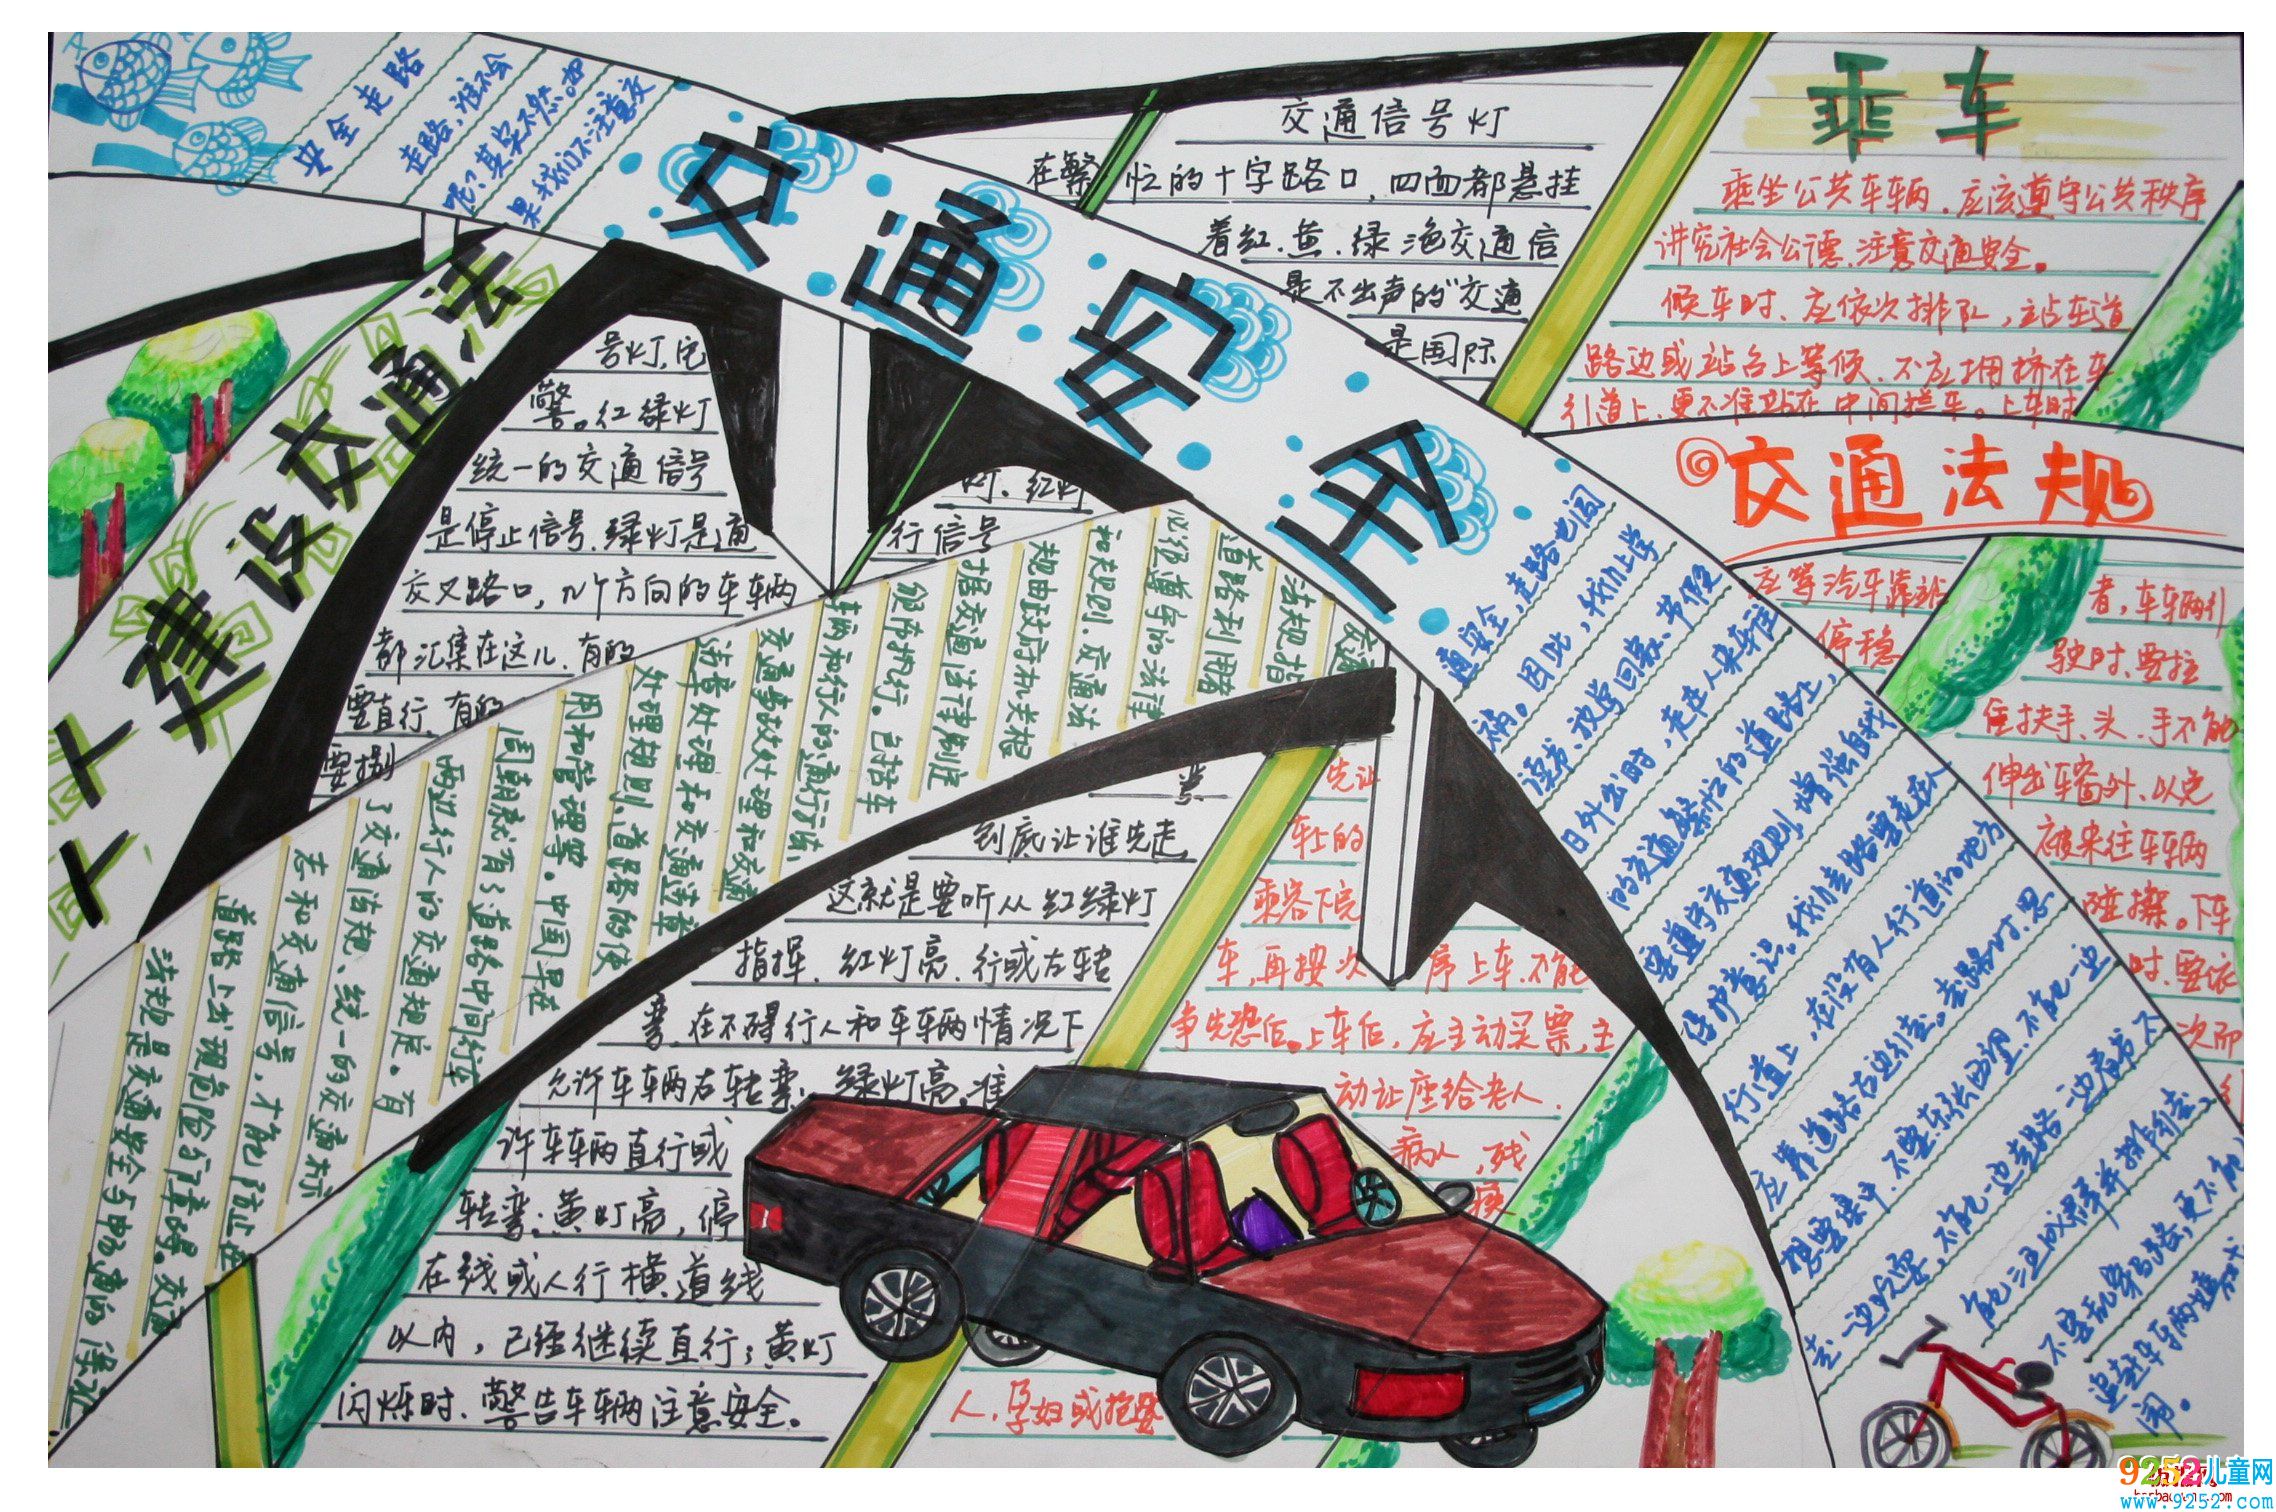 安全走路
走路,谁不会
呢?其实不然。如
果我们不注意交
通安全,走路也闯
祸。因此,我们上学
读书、放学回家、节假
日外出时,走在人来车往
的交通繁忙的道路上,
要遵守交通规则,增强自我
保护意识。我们走路要走在人
行道上,在没有人行道的地方
应靠道路右边行走。走路时,思
想要集中,不要东张西望,不能一边
走一边吃东西,不能一边走路一边看书,不
能三五成群并排行走,
不要乱穿马路,更不应
追赶车辆嬉戏
闹。
交通安全
建设交通法
交通信号灯
在繁忙的十字路口,四面都悬挂
着红、黄、绿、色交通信
号灯,它是不出声的“交通
警。红绿灯是国际
统一的交通信号灯、红灯
是停止信号、绿灯是通行信号
交叉路口,几个方向的车辆
都汇集在这儿、有的
要直行、有的
要拐
到底让谁先走,
这就是要听从红绿灯
指挥、红灯亮、行或右转
弯、在不碍行人和车辆情况下
允许车辆右转弯;绿灯亮,准
许车辆直行或
转弯;黄灯亮,停
在线或人行横道线
以内,已经继续直行;黄灯
闪烁时、警告车辆注意安全。
乘车
乘坐公共车辆、应该遵守公共秩序
讲究社会公德、注意交通安全。
候车时、应依次排队,站在道
路边或站台上等候、不应拥挤在车
引道上,更不准站在中间拦车。上车时
应等汽车靠站
停稳
先让
车上的
乘客下完
车,再按次序上车、不能
争先恐后。上车后,应主动买票,主
动让座给老人、
病人,残
疾
人、孕妇或抱婴
者,车辆行
驶时、要拉
住扶手、头、手不能
伸出车窗外、以免
被来往车辆
碰擦。下车
时、要依
次而
交通法规
交通
法规指
道路利用者
必须遵守的法律
和规则、交通法
规由政府机关根
据交通法律制定
能市执行。包括车
辆和行人的通行条
交通事故处理和交通
违章处理和交通违章
处理规则、道路的使
用和管理等。中国早在
周朝就有了道路中间行车
两边行人的交通规定。有
了交通法规、统一的交通标
志和交通信号,才能防止在
道路上出现危险行车。交通
法规是交通安全与畅通的
9252儿童网
www.9252.com